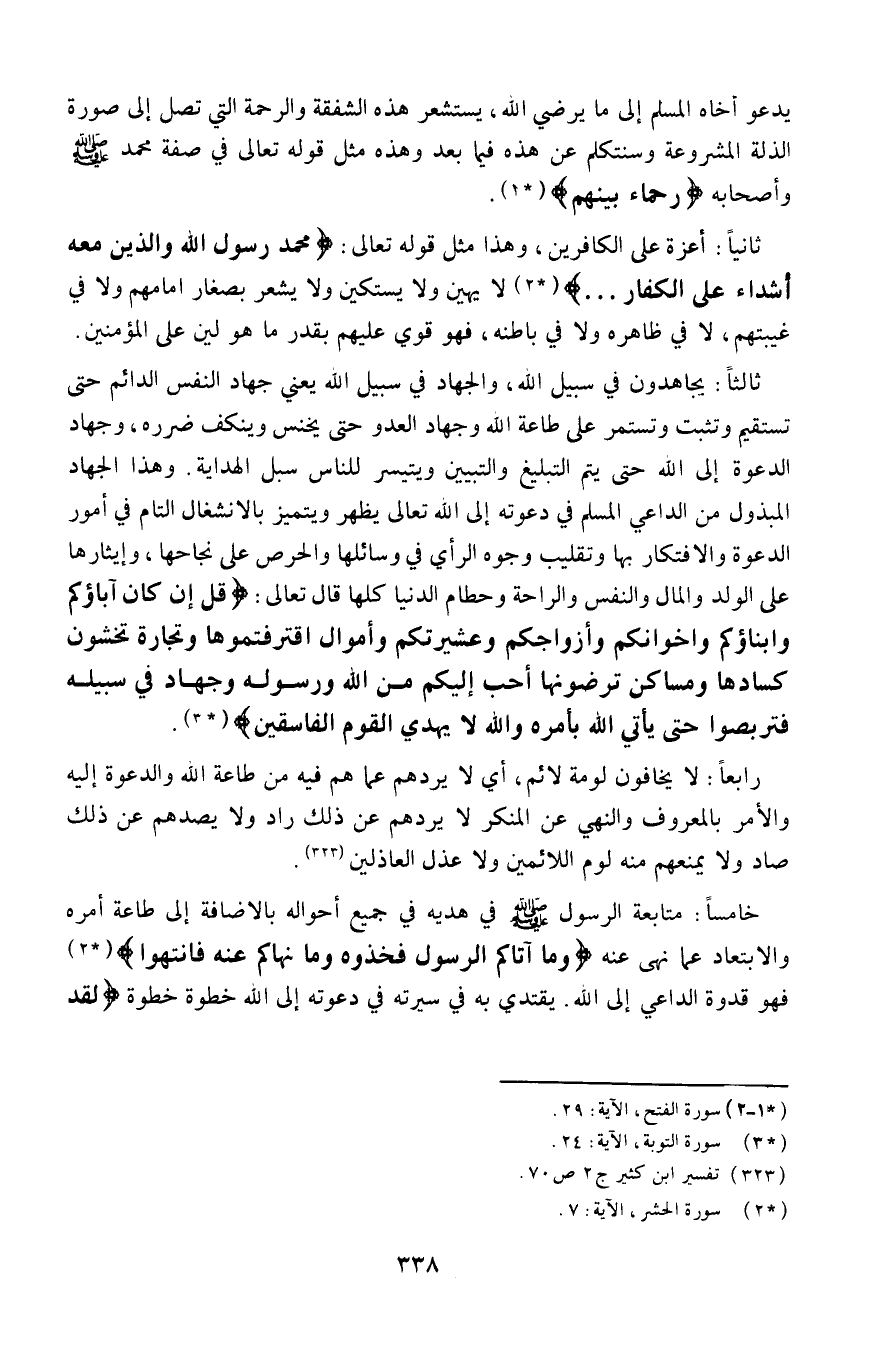 يدعو أخاه المسلم إلى ما يرضي الله، يستشعر هذه الشفقة والرحمة التي تصل إلى صورة
الذلة المشروعة وسنتكلم عن هذه فيما بعد وهذه مثل قوله تعالى في صفة محمد ﷺ
وأصحابه ﴿رحماء بينهم﴾(*١).
ثانياً: أعزة على الكافرين، وهذا مثل قوله تعالى: ﴿محمد رسول الله والذين معه
أشداء على الكفار ...﴾(*٢) لا يهين ولا يستكين ولا يشعر بصغار امامهم ولا في
غيبتهم، لا في ظاهره ولا في باطنه، فهو قوي عليهم بقدر ما هو لين على المؤمنين.
ثالثاً: يجاهدون في سبيل الله، والجهاد في سبيل الله يعني جهاد النفس الدائم حتى
تستقيم وتثبت وتستمر على طاعة الله وجهاد العدو حتى يخنس وينكف ضرره، وجهاد
الدعوة إلى الله حتى يتم التبليغ والتبيين ويتيسر للناس سبل الهداية. وهذا الجهاد
المبذول من الداعي المسلم في دعوته إلى الله تعالى يظهر ويتميز بالانشغال التام في أمور
الدعوة والافتكار بها وتقليب وجوه الرأي في وسائلها والحرص على نجاحها، وإيثارها
على الولد والمال والنفس والراحة وحطام الدنيا كلها قال تعالى: ﴿قل إن كان آباؤكم
وابناؤكم واخوانكم وأزواجكم وعشيرتكم وأموال اقترفتموها وتجارة تخشون
كسادها ومساكن ترضونها أحب إليكم مـن الله ورسـولـه وجهـاد في سبيلـه
فتربصوا حتى يأتي الله بأمره والله لا يهدي القوم الفاسقين﴾(*٣).
رابعاً: لا يخافون لومة لائم، أي لا يردهم عما هم فيه من طاعة الله والدعوة إليه
والأمر بالمعروف والنهي عن المنكر لا يردهم عن ذلك راد ولا يصدهم عن ذلك
صاد ولا يمنعهم منه لوم اللائمين ولا عذل العاذلين(٣٢٣).
خامساً: متابعة الرسول ﷺ في هديه في جميع أحواله بالاضافة إلى طاعة أمره
والابتعاد عما نهى عنه ﴿وما آتاكم الرسول فخذوه وما نهاكم عنه فانتهوا﴾(*٢)
فهو قدوة الداعي إلى الله. يقتدي به في سيرته في دعوته إلى الله خطوة خطوة ﴿لقد
(*١-٢) سورة الفتح، الآية: ٢٩.
(*٣) سورة التوبة، الآية: ٢٤.
(٣٢٣) تفسير ابن كثير ج٢ ص٧٠.
(*٢) سورة الحشر، الآية: ٧.
٣٣٨